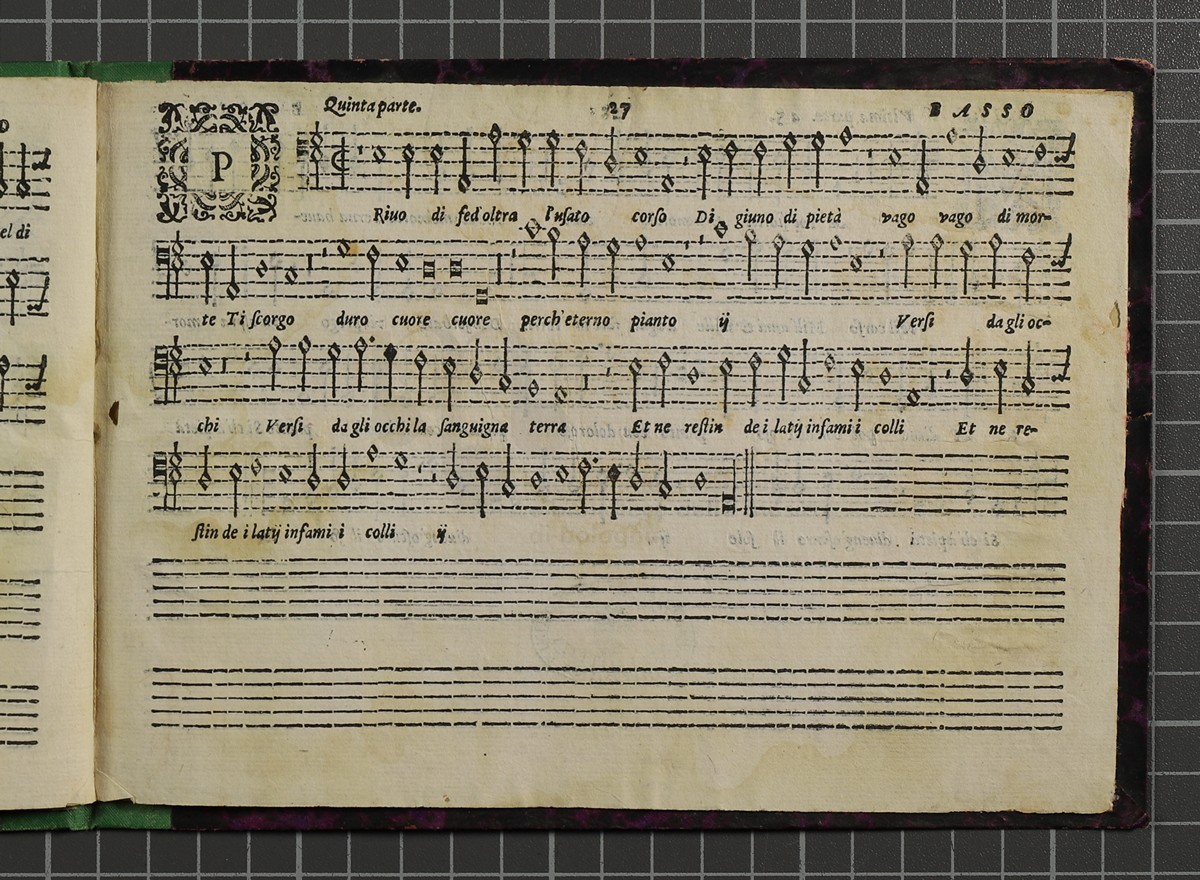 Quinta parte. 27 BASSO
P
Riuo di sed'oltra l'usato corso Di giuno di pietà vago vago di mor-
te Ti scorgo duro cuore cuore perch'eterno pianto ij Versi da gli oc-
chi Versi da gli occhi la sanguigna terra Et ne restin de i latij infami i colli Et ne re-
stin de i latij infami i colli ij
el di